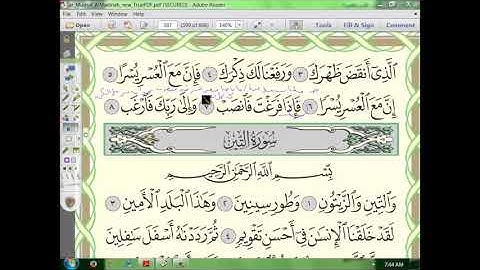 al_Mushaf_Al Madinah_new_TruePDF.pdf (SECURED) - Adobe Reader
Open
597
(599 of 606)
146%
Tools
Fill & Sign
Comment
ٱلَّذِىٓ أَنقَضَ ظَهْرَكَ ٣ وَرَفَعْنَا لَكَ ذِكْرَكَ ٤ فَإِنَّ مَعَ ٱلْعُسْرِ يُسْرًا ٥
إِنَّ مَعَ ٱلْعُسْرِ يُسْرًا ٦ فَإِذَا فَرَغْتَ فَٱنصَبْ ٧ وَإِلَىٰ رَبِّكَ فَٱرْغَب ٨
سُورَةُ التِّينِ
بِسْمِ ٱللَّهِ ٱلرَّحْمَٰنِ ٱلرَّحِيمِ
وَٱلتِّينِ وَٱلزَّيْتُونِ ١ وَطُورِ سِينِينَ ٢ وَهَٰذَا ٱلْبَلَدِ ٱلْأَمِينِ ٣
لَقَدْ خَلَقْنَا ٱلْإِنسَٰنَ فِىٓ أَحْسَنِ تَقْوِيمٍ ٤ ثُمَّ رَدَدْنَٰهُ أَسْفَلَ سَٰفِلِينَ
7:44 AM